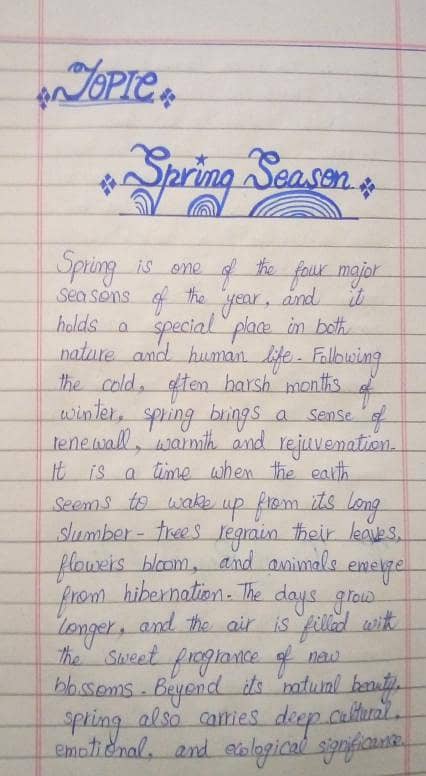 Topic
Spring Season
Spring is one of the four major
seasons of the year, and it
holds a special place in both
nature and human life. Following
the cold, often harsh months of
winter, spring brings a sense of
renewall, warmth and rejuvenation.
It is a time when the earth
seems to wake up from its long
slumber - trees regrain their leaves,
flowers bloom, and animals emerge
from hibernation. The days grow
longer, and the air is filled with
the sweet frogrance of new
blossoms. Beyond its natural beauty,
spring also carries deep cultural,
emotional, and ecological significance.